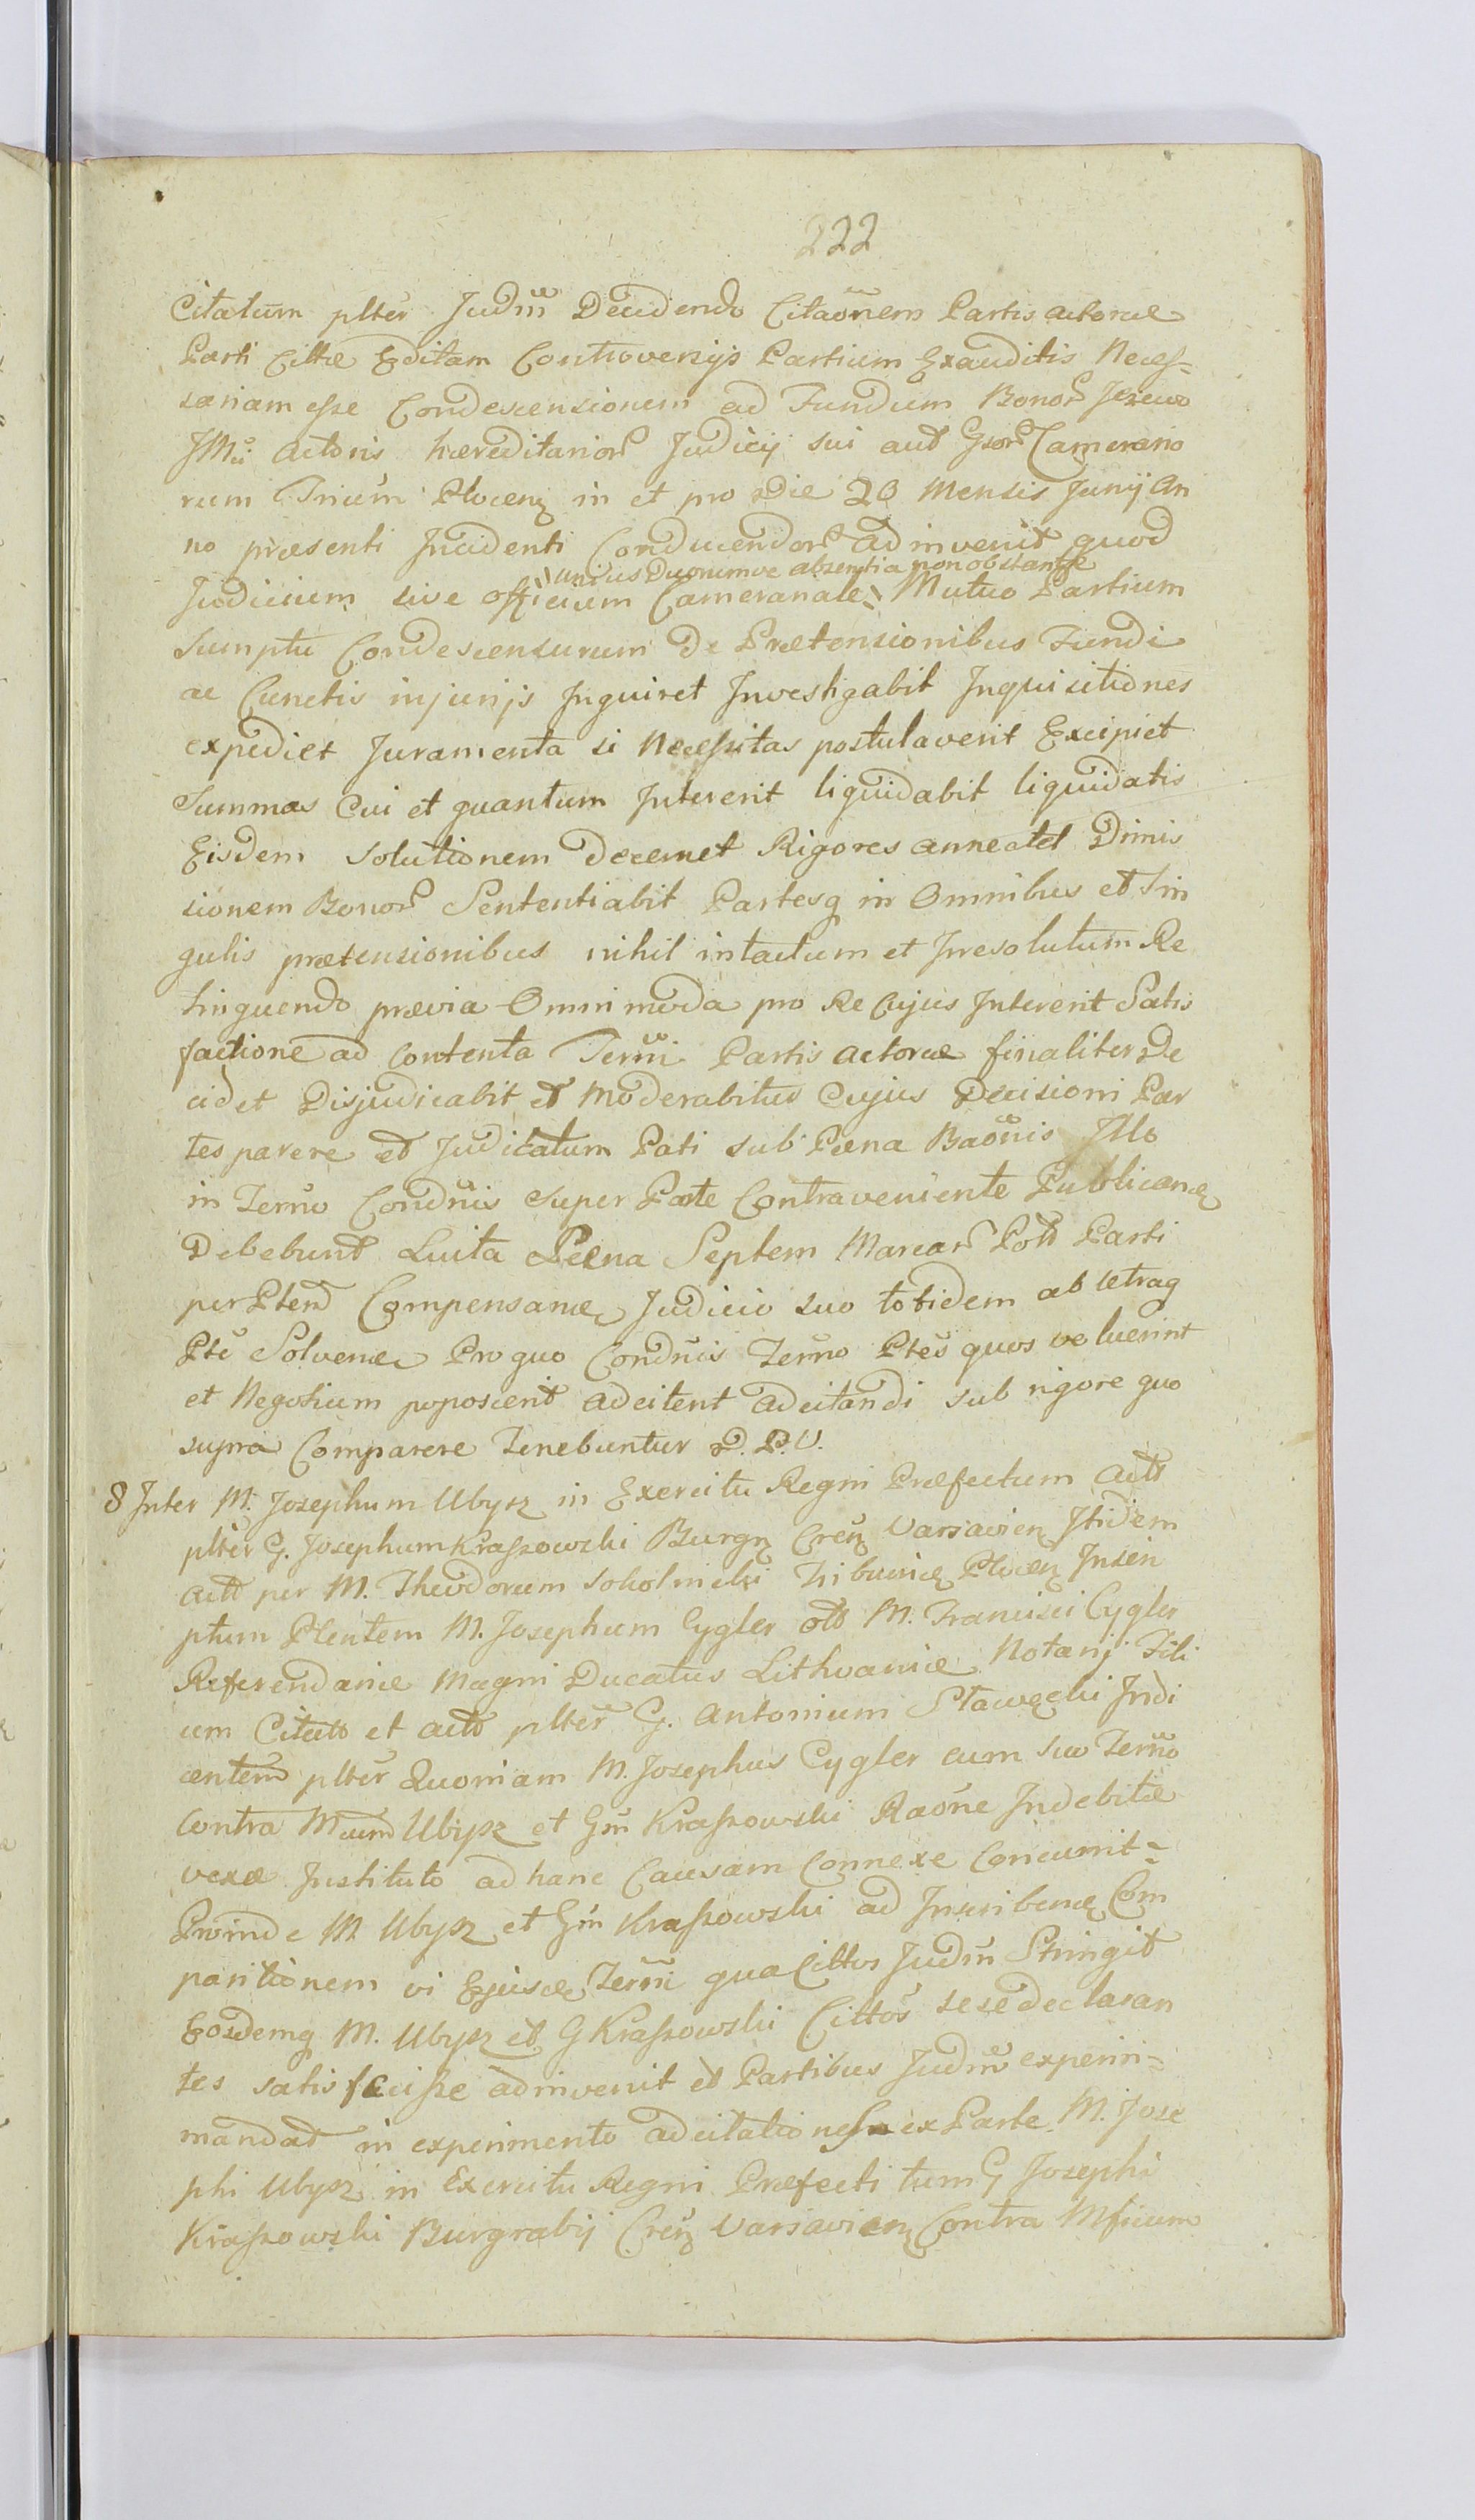 222
Citatum plter Judm Decidendo Citaonem Partis actoreæ
Parti Cittæ Editam Controversijs Partium Exauditis Necess-
sariam esse Condescensionem ad Fundum Bonor Jezewo
actoris hæreditarior Judicij sui aut Gsor Camerario
rum Trium Plocen in et pro Die 20 Mensis Junij An
no præsenti Incidenti Conducendor adinvenit quod
unius Duorumve absentia non obstante
Judicium sive officium Camerariale Mutuo Partium
Sumptu Condescensurum De Prætensionibus Fundi
ac Cunctis injurijs Inquiret Investigabit Inquisitiones
expediet Juramenta si Necessitas postulaverit Excipiet
Summas Cui et quantum Intererit liquidabit liquidatis
Eisdem solutionem Decernet Rigores annectet Dimis
sionem Bonor Sententiabit Partesq in Omnibus et Sin
gulis prætensionibus nihil intactum et Irresolutum Re
linquendo prævia Omnimoda pro Re Cujus Intererit Satis
factione ad Contenta Termi Partis actoreæ finaliter De
cidet Disjudicabit et Moderabitur Cujus Decisioni Par
tes parere et Judicatum Pati sub Pæna Baonis Illo
in Termo Condnis super Parte Contraveniente Publicanæ
Debebunt Luita Pæna Septem Marcar Poll Parti
per Ptem Compensanæ Judicio suo totidem ab utraq
Pte Solvenæ Pro quo Condnis Termo Ptes quos voluerint
et Negotium poposcerit adcitent adcitandi sub rigore quo
supra Comparere Tenebuntur D. P. V.
8 Inter M. Josephum Ubysz in Exercitu Regni Præfectum actt
plter G. Josephum Kraszowski Burgr Cren Varsavien Itidem
actt per M. Theodorum Sokolnicki Tribunæ Plocen Inscri
ptum Plentem M. Josephum Cygler ott M. Francisci Cygler
Referendariæ Magni Ducatus Lithvaniæ Notarij Fili
um Citatt et actt plter G. Antonium Sławęcki Indi
centem plter Quoniam M. Josephus Cygler cum suo Termo
Contra Mcum Ubysz et Gm Kraszowski Raone Indebitæ
vexæ Instituto ad hanc Causam Connexe Concurrit-
Proinde M Ubysz et Gm Kraszowski ad Inscribenæ Com
paritionem vi Ejusdæ Termi qua Cittos Judm Stringit
Eosdemq M. Ubysz et G Kraszowski Cittos sese declaran
tes satisfecisse adinvenit et Partibus Judm experiri-
mandat in experimento adcitationem ex Parte M. Jose
phi Ubysz in Exercitu Regni Præfecti tum G Josephi
Kraszowski Burgrabij Cren Varsavien Contra Mficum